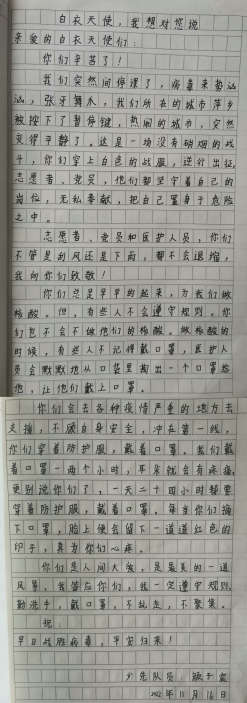 白衣天使，我想对您说
亲爱的白衣天使们：
你们辛苦了！
我们突然间停课了，病毒来势汹
汹，张牙舞爪，我们所在的城市萍乡
被按下了暂停键，热闹的城市，突然
变得平静了。这是一场没有硝烟的战
斗，你们穿上白色的战服，逆行出征，
志愿者、党员，他们都坚守着自己的
岗位，无私奉献，把自己置身于危险
之中。
志愿者、党员和医护人员，你们
不管是刮风还是下雨，都不会退缩，
我向你们致敬！
你们总是早早的起来，为我们做
核酸。但，有些人不会遵守规则。你
们也不会不做他们的核酸。做核酸的
时候，有些人不记得戴口罩，医护人
员会默默地从口袋里掏出一个口罩给
他，让他们戴上口罩。
你们会去各种疫情严重的地方去
支援，不顾自身安全，冲在第一线，
你们穿着防护服，戴着口罩。我们戴
着口罩一两个小时，耳朵就会有疼痛，
更别说你们了，一天二十四小时都要
穿着防护服，戴着口罩。每当你们摘
下口罩，脸上便会留下一道道红色的
印子，真为你们心疼。
你们是人间大爱，是最美的一道
风景，我答应你们，我一定遵守规则，
勤洗手，戴口罩，不乱走，不聚集。
祝：
早日战胜病毒，平安归来！
少先队员：
2022年11月16日